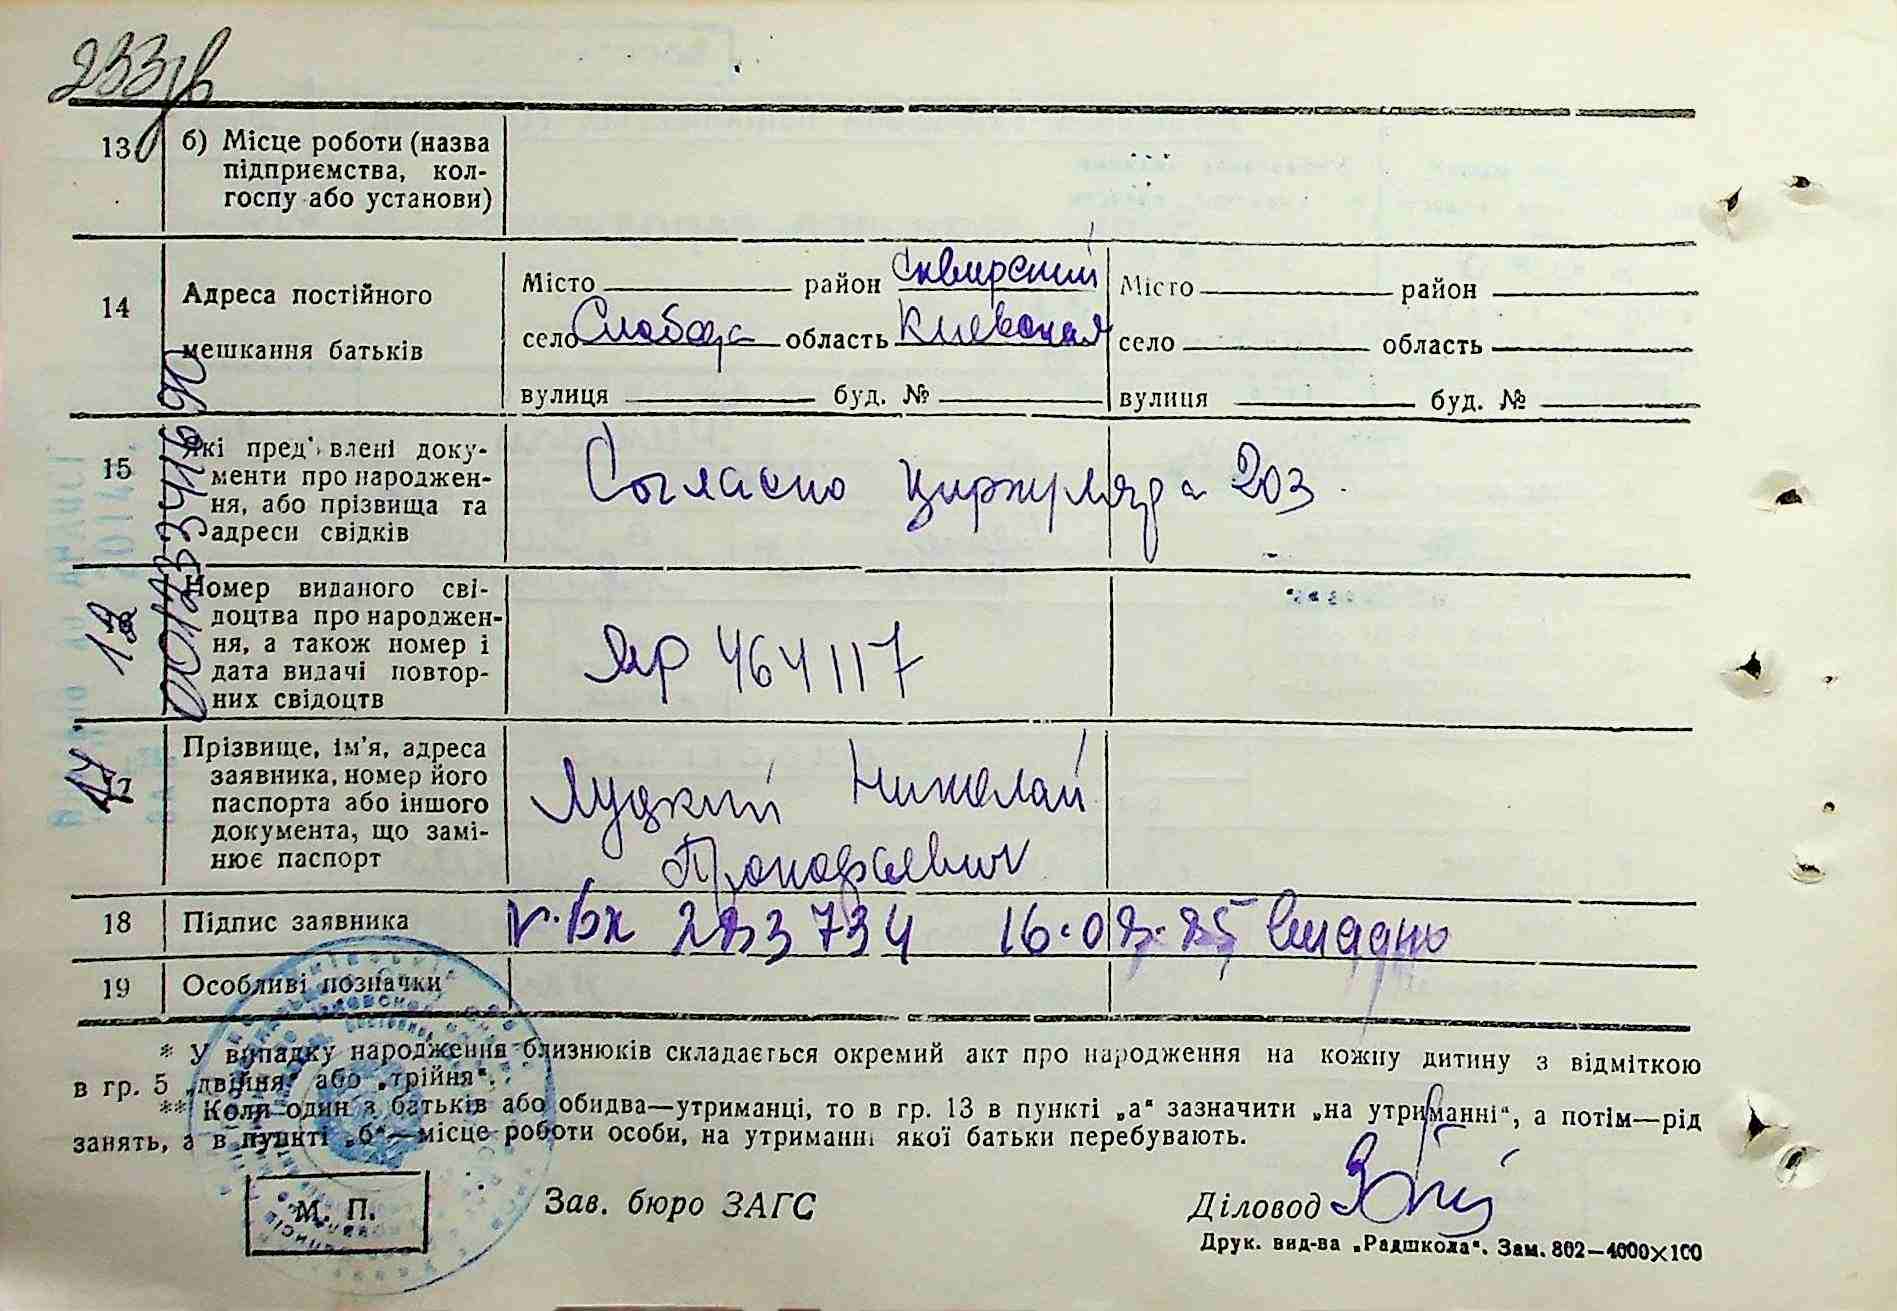 233
13 б) Місце роботи (назва
підприємства, кол-
госпу або установи)
14 Адреса постійного
мешкання батьків
Місто район Сквирский
село Слобода область Киевская
вулиця буд. №
Місто район
село область
вулиця буд. №
15 Які пред'влені доку-
менти про народжен-
ня, або прізвища та
адреси свідків
Согласно циркуляра 203
Номер виданого сві-
доцтва про народжен-
ня, а також номер і
дата видачі повтор-
них свідоцтв
ЯР 464117
17 Прізвище, ім'я, адреса
заявника, номер його
паспорта або іншого
документа, що замі-
нює паспорт
Луцкий Николай
Прокофьевич
18 Підпис заявника
19 Особливі позначки
* У випадку народження близнюків складається окремий акт про народження на кожну дитину з відміткою
в гр. 5 „двійня" або „трійня".
** Коли один з батьків або обидва—утриманці, то в гр. 13 в пункті „а" зазначити „на утриманні", а потім—рід
занять, а в пункті „б"—місце роботи особи, на утриманні якої батьки перебувають.
М. П.
Зав. бюро ЗАГС
Діловод
Друк. вид-ва „Радшкола". Зам. 802—4000×100